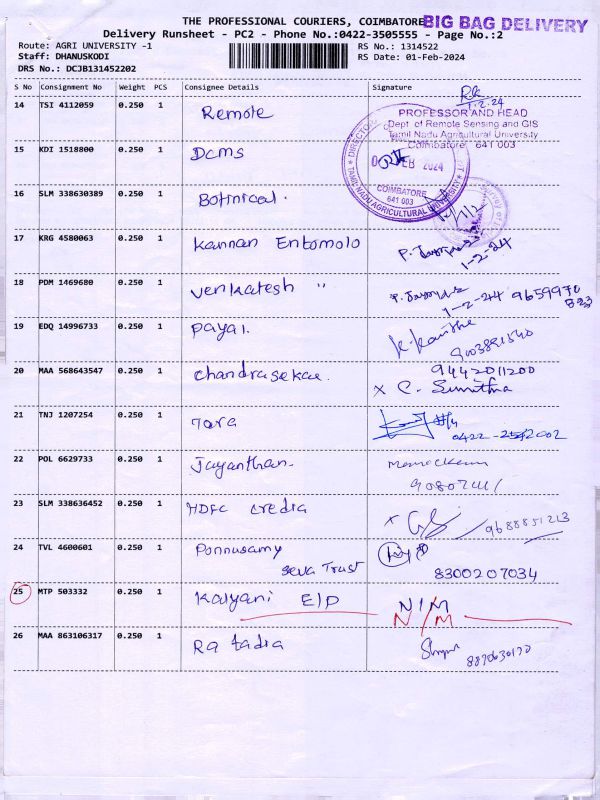 THE PROFESSIONAL COURIERS, COIMBATORE
BIG BAG DELIVERY
Delivery Runsheet - PC2 - Phone No.:0422-3505555 - Page No.:2
Route: AGRI UNIVERSITY -1
RS No.: 1314522
Staff: DHANUSKODI
RS Date: 01-Feb-2024
DRS No.: DCJB131452202
S No Consignment No Weight PCS Consignee Details Signature
14 TSI 4112059 0.250 1 Remote
1.2.24
PROFESSOR AND HEAD
Dept of Remote Sensing and GIS
Tamil Nadu Agricultural University
Coimbatore 641 003
15 KDI 1518800 0.250 1 Dcms
FEB 2024
COIMBATORE
641 003
TAMIL NADU AGRICULTURAL UNIVERSITY
16 SLM 338630389 0.250 1 Botinical.
17 KRG 4580063 0.250 1 Kannan Entomolo
1-2-24
18 PDM 1469680 0.250 1 Venkatesh "
1-2-24 9659970
823
19 EDQ 14996733 0.250 1 Payal.
9003891540
20 MAA 568643547 0.250 1 Chandrasekar. 9442011200
x C. Sumithra
21 TNJ 1207254 0.250 1 Tara
22 POL 6629733 0.250 1 Jayanthan.
23 SLM 338636452 0.250 1 HDFC Credia x 9688851213
24 TVL 4600601 0.250 1 Ponnusamy
Seva Trust
8300207034
25 MTP 503332 0.250 1 Kalyani E/P N/M
N/M
26 MAA 863106317 0.250 1 Ra tadia
8870630170